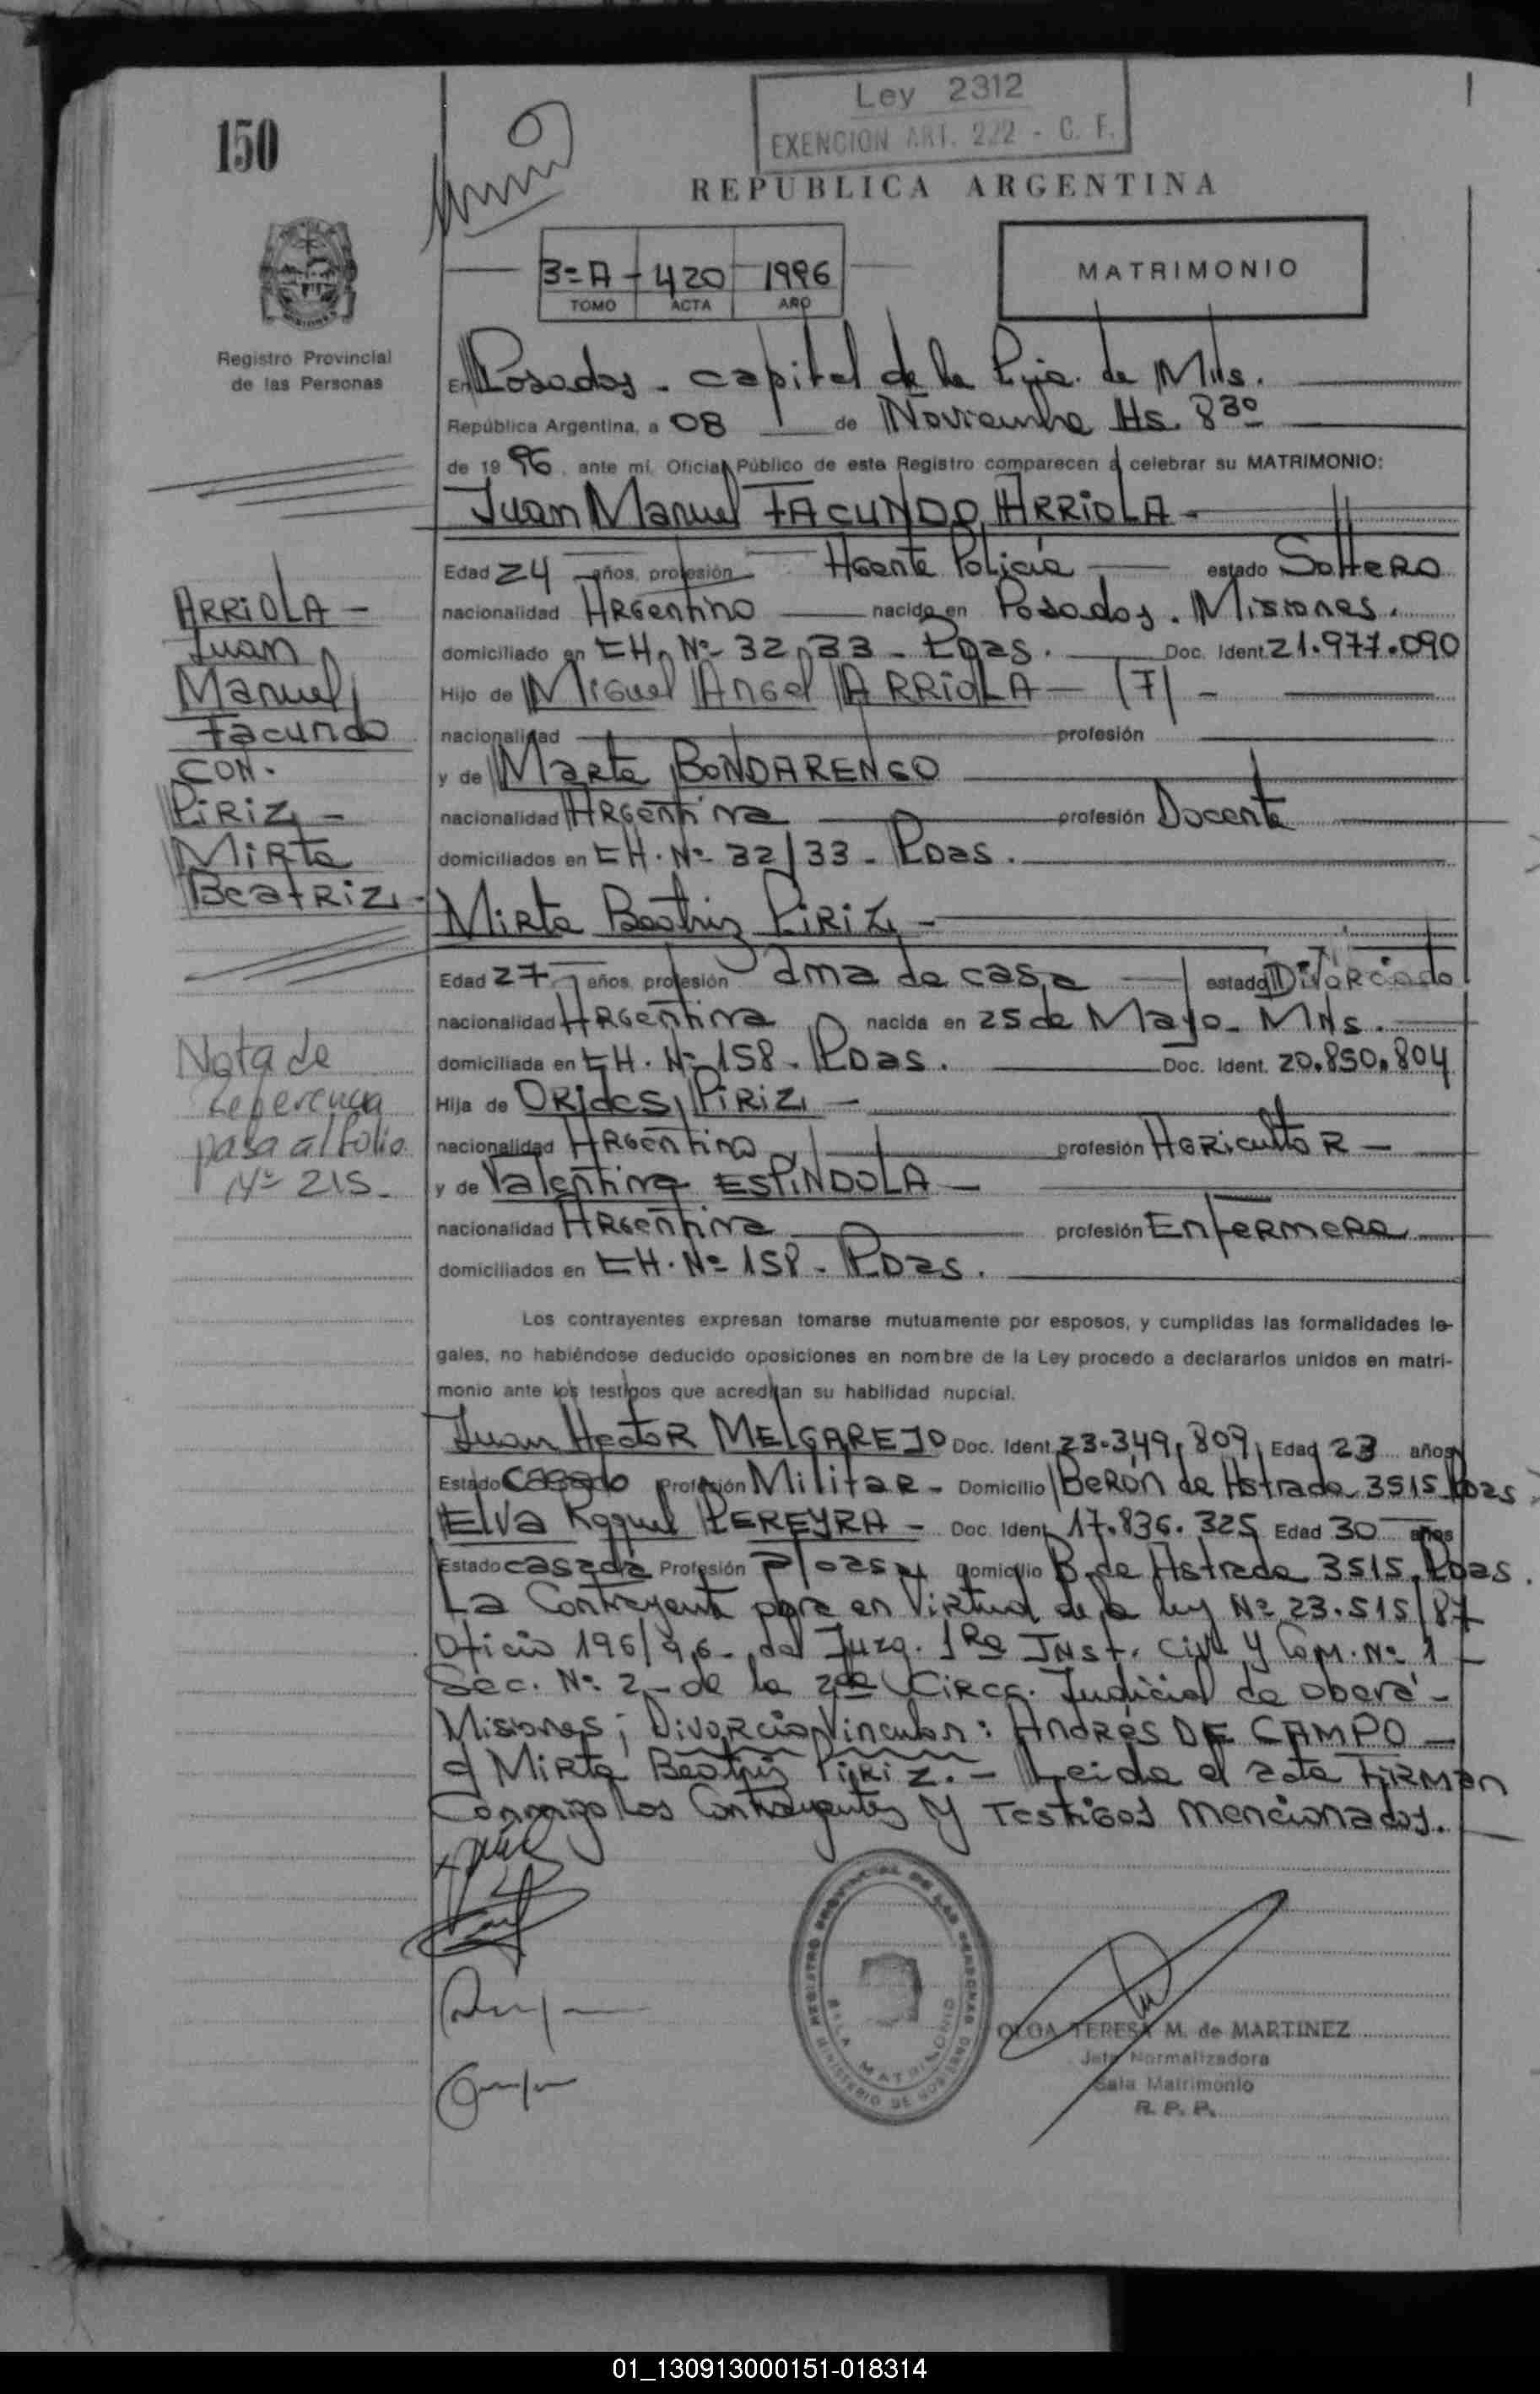 150
Ley 2312
EXENCION ART. 222 - C. F.
REPUBLICA ARGENTINA
3=A - 420 1996
TOMO ACTA AÑO
MATRIMONIO
Registro Provincial
de las Personas
En Posadas - capital de la Pcia. de Mns.
República Argentina, a 08 de Noviembre Hs. 8 30
de 19 96, ante mí, Oficial Público de este Registro comparecen a celebrar su MATRIMONIO:
Juan Manuel FACUNDO ARRIOLA -
Edad 24 años, profesión Agente Policia estado Soltero
nacionalidad Argentino nacido en Posadas. Misiones.
domiciliado en CH. Nº 32,33 - Pdas. Doc. Ident. 21.977.090
Hijo de Miguel Angel ARRIOLA - (F) -
nacionalidad profesión
y de Marta BONDARENCO
nacionalidad Argentina profesión Docente
domiciliados en CH. Nº 32/33 - Pdas.
Mirta Beatriz PIRIZ -
Edad 27 años, profesión ama de casa estado Divorciada
nacionalidad Argentina nacida en 25 de Mayo - Mns.
domiciliada en CH. Nº 158 - Pdas. Doc. Ident. 20.850.804
Hija de Orides PIRIZ -
nacionalidad Argentino profesión Agricultor -
y de Valentina ESPÍNDOLA -
nacionalidad Argentina profesión Enfermera
domiciliados en CH. Nº 158 - Pdas.
ARRIOLA -
Juan
Manuel
Facundo
CON.
PIRIZ -
Mirta
Beatriz -
Nota de
referencia
pasa al folio
Nº 215.
Los contrayentes expresan tomarse mutuamente por esposos, y cumplidas las formalidades le-
gales, no habiéndose deducido oposiciones en nombre de la Ley procedo a declararlos unidos en matri-
monio ante los testigos que acreditan su habilidad nupcial.
Juan Hector MELGAREJO Doc. Ident. 23.349.809 Edad 23 años
Estado Casado Profesión Militar - Domicilio Berón de Astrada 3515 Pdas
Elva Raquel PEREYRA - Doc. Ident. 17.836.325 Edad 30 años
Estado casada Profesión Domicilio B. de Astrada 3515. Pdas.
La Contrayente en Virtud de la ley Nº 23.515/87
Oficio 196/96 - del Juzg. 1Ra Inst. Civil y Com. Nº 1 -
Sec. Nº 2 - de la 2da Circc. Judicial de Oberá -
Misiones; Divorcio Vincular: Andrés DE CAMPO -
c/ Mirta Beatriz Piriz. - Leida el acta FIRMAN
Conmigo los Contrayentes y Testigos mencionados.
REGISTRO PROVINCIAL DE LAS PERSONAS
SALA MATRIMONIO
MINISTERIO DE GOBIERNO
OLGA TERESA M. de MARTINEZ
Jefa Normalizadora
Sala Matrimonio
R. P. P.
01_130913000151-018314